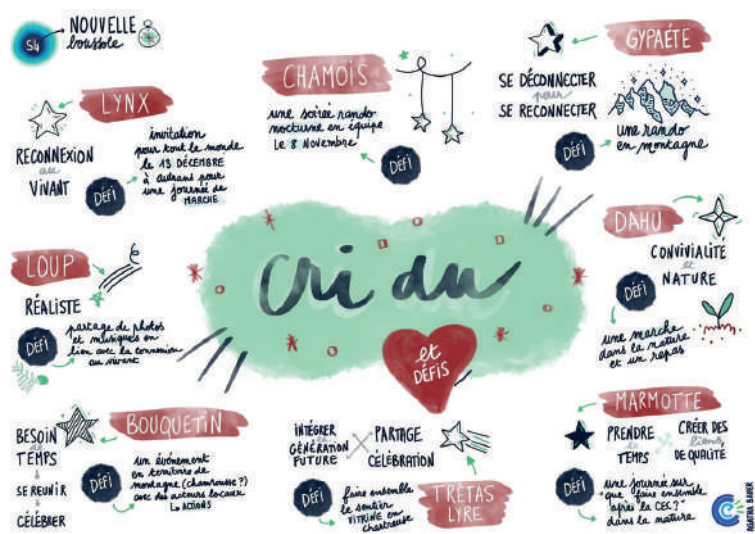 S4
NOUVELLE
boussole
LYNX
RECONNEXION
au
VIVANT
DÉFI
invitation
pour tout le monde
le 13 DÉCEMBRE
à autrans pour
une journée de
MARCHE
CHAMOIS
une soirée rando
nocturne en équipe
LE 8 NOVEMBRE
DÉFI
GYPAÉTE
SE DÉCONNECTER
pour
SE RECONNECTER
DÉFI
une rando
en montagne
LOUP
RÉALISTE
DÉFI
partage de photos
et musiques en
lien avec la connexion
au vivant
Cri du
et
DÉFIS
DAHU
CONVIVIALITÉ
et
NATURE
DÉFI
une marche
dans la nature
et un repas
BOUQUETIN
BESOIN
de
TEMPS
SE REUNIR
CÉLÉBRER
DÉFI
un événement
en territoire de
montagne (chamrousse?)
avec des acteurs locaux
ACTIONS
INTÉGRER
la
GÉNÉRATION
FUTURE
PARTAGE
CÉLÉBRATION
DÉFI
faire ensemble
le sentier
VITRINE en
chartreuse
TRÉTAS
LYRE
MARMOTTE
PRENDRE
le
TEMPS
CRÉER DES
liens
DE QUALITÉ
DÉFI
une journée sur
que "faire ensemble
après la CEC?"
dans la nature